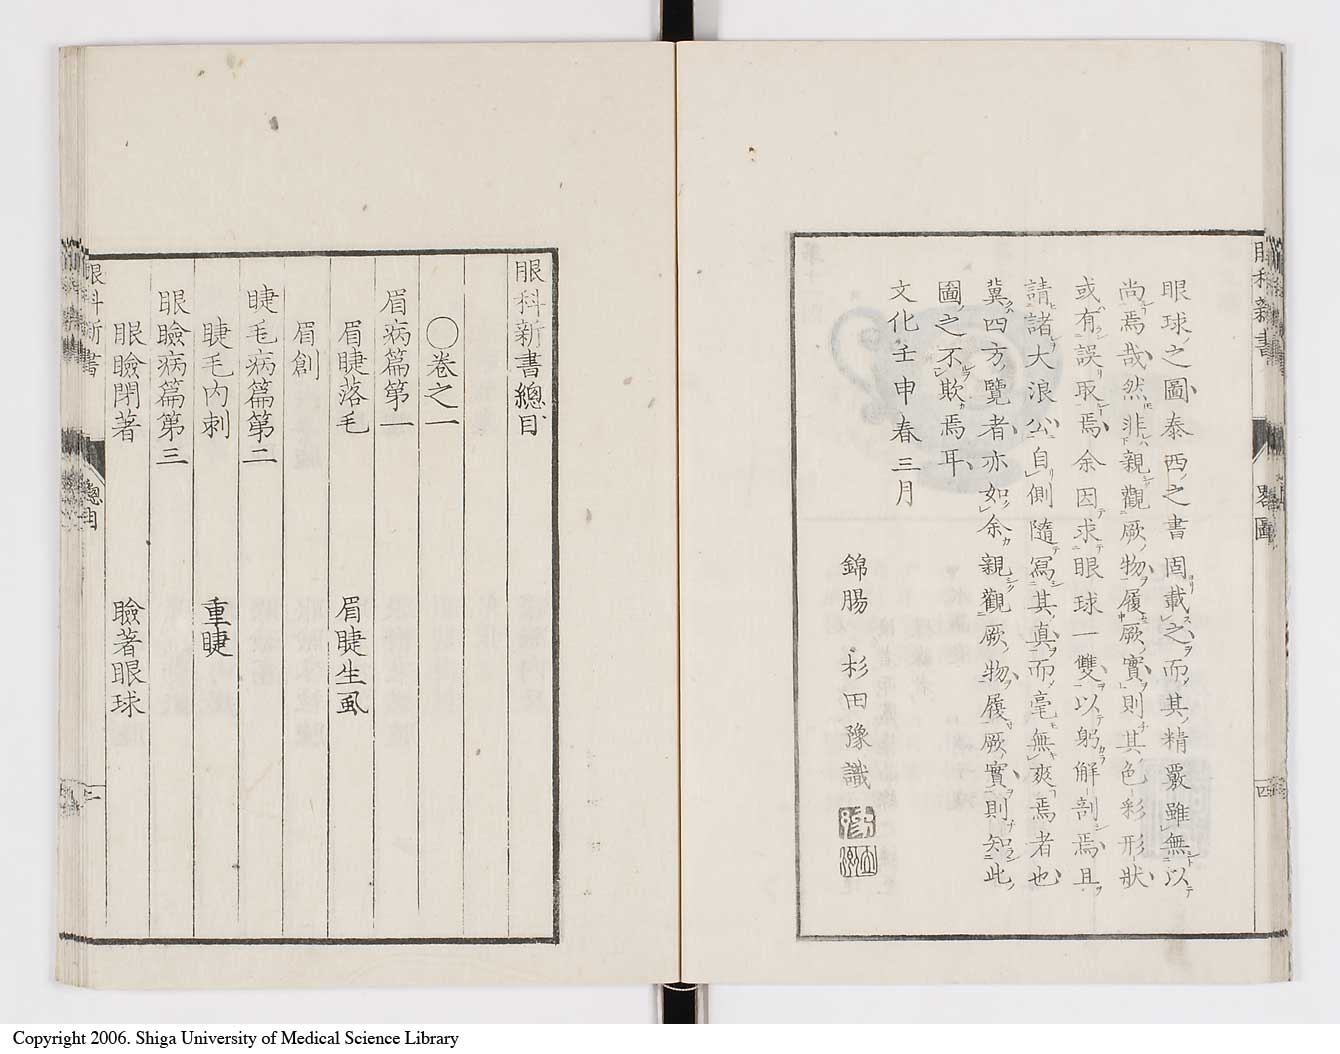 眼科新書
畧圖
四
眼球之圖泰西之書固載之而其精覈雖無以
尚焉哉然非親觀厥物履厥實則其色彩形狀
或有誤取焉余因求眼球一雙以躬解剖焉且
請諸大浪公自側隨寫其真而毫無爽焉者也
冀四方覽者亦如余親觀厥物履厥實則知此
圖之不欺焉耳
文化壬申春三月
錦腸 杉田豫識
眼科新書總目
○卷之一
眉病篇第一
眉睫落毛 眉睫生虱
眉創
睫毛病篇第二
睫毛內刺 重睫
眼瞼病篇第三
眼瞼閉著 瞼著眼球
眼科新書
總目
一
Copyright 2006. Shiga University of Medical Science Library